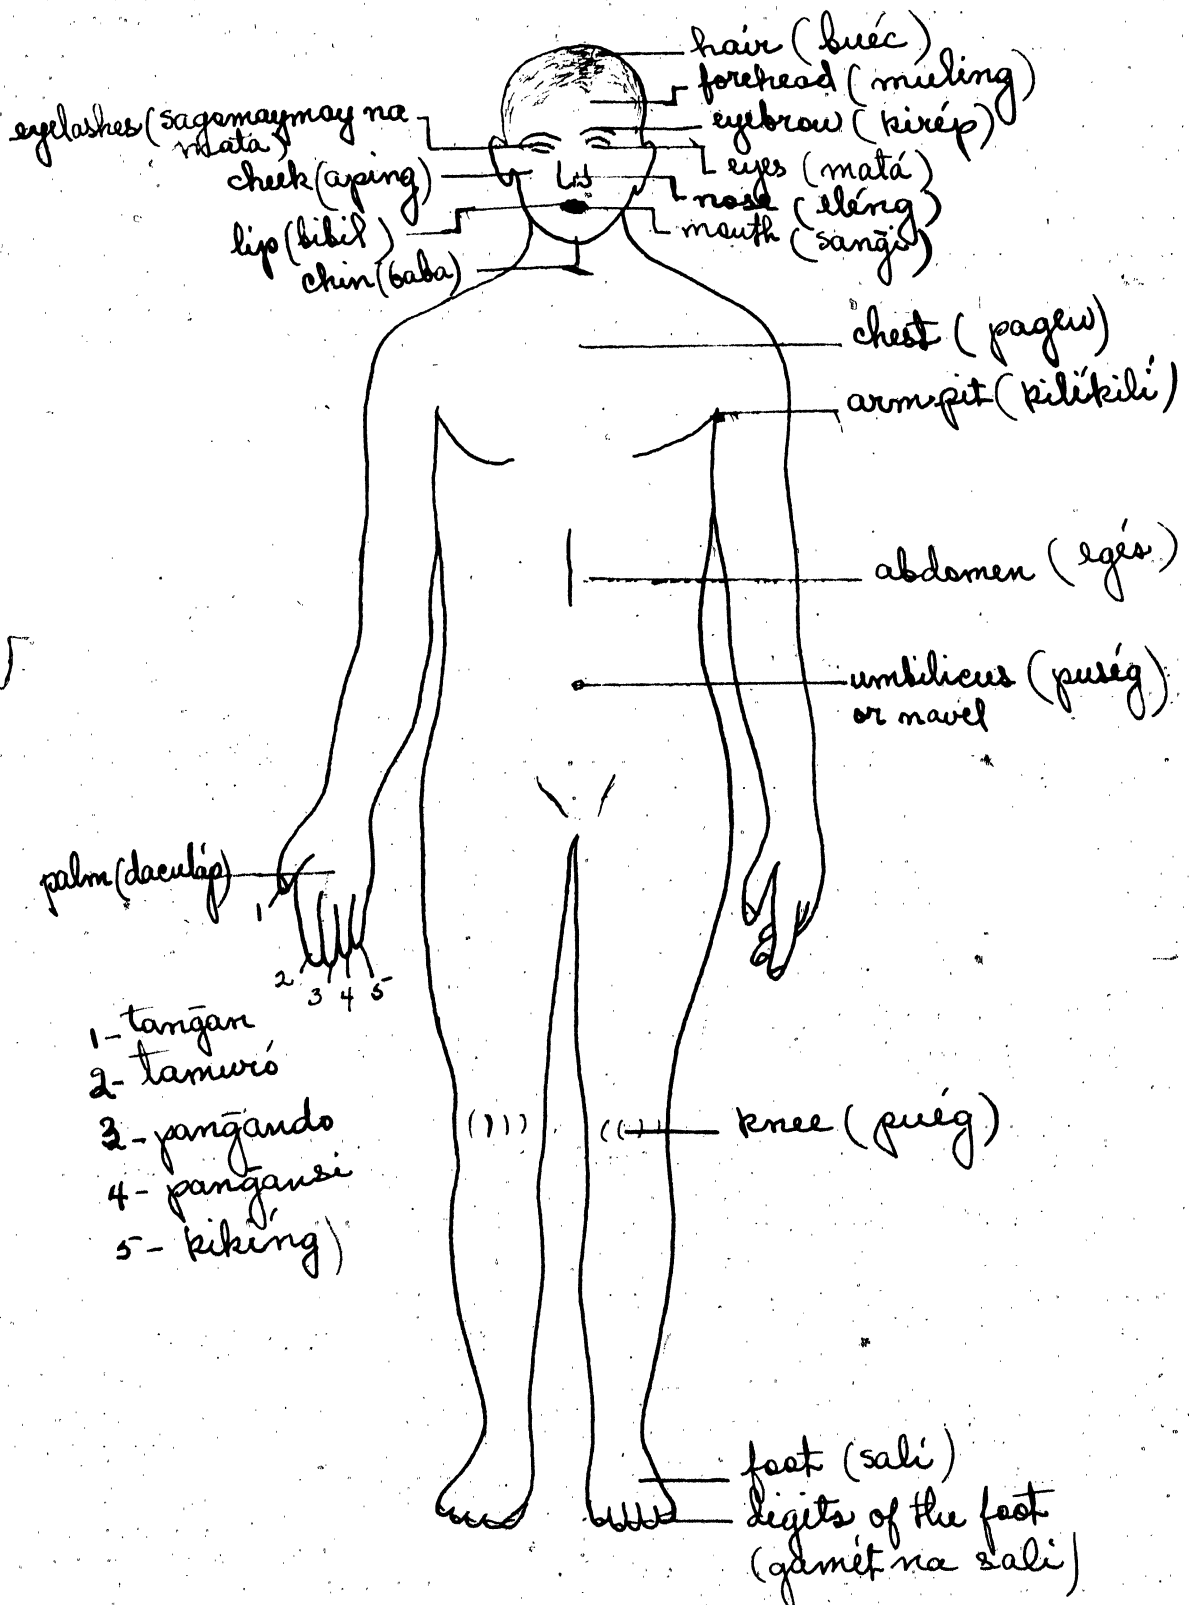 hair (buéc)
forehead (muling)
eyebrow (kirép)
eyes (matá)
nose (eléng)
mouth (sangi)
eyelashes (sagomaymay na
mata)
cheek (aping)
lip (bibil)
chin (baba)
chest (pagew)
armpit (kilikili)
abdomen (egés)
umbilicus (puség)
or navel
palm (daculáp)
1
2 3 4 5
1- tangan
2- tamuró
3- pangando
4- pangansi
5- kikíng)
knee (puég)
foot (sali)
digits of the foot
(gamét na sali)